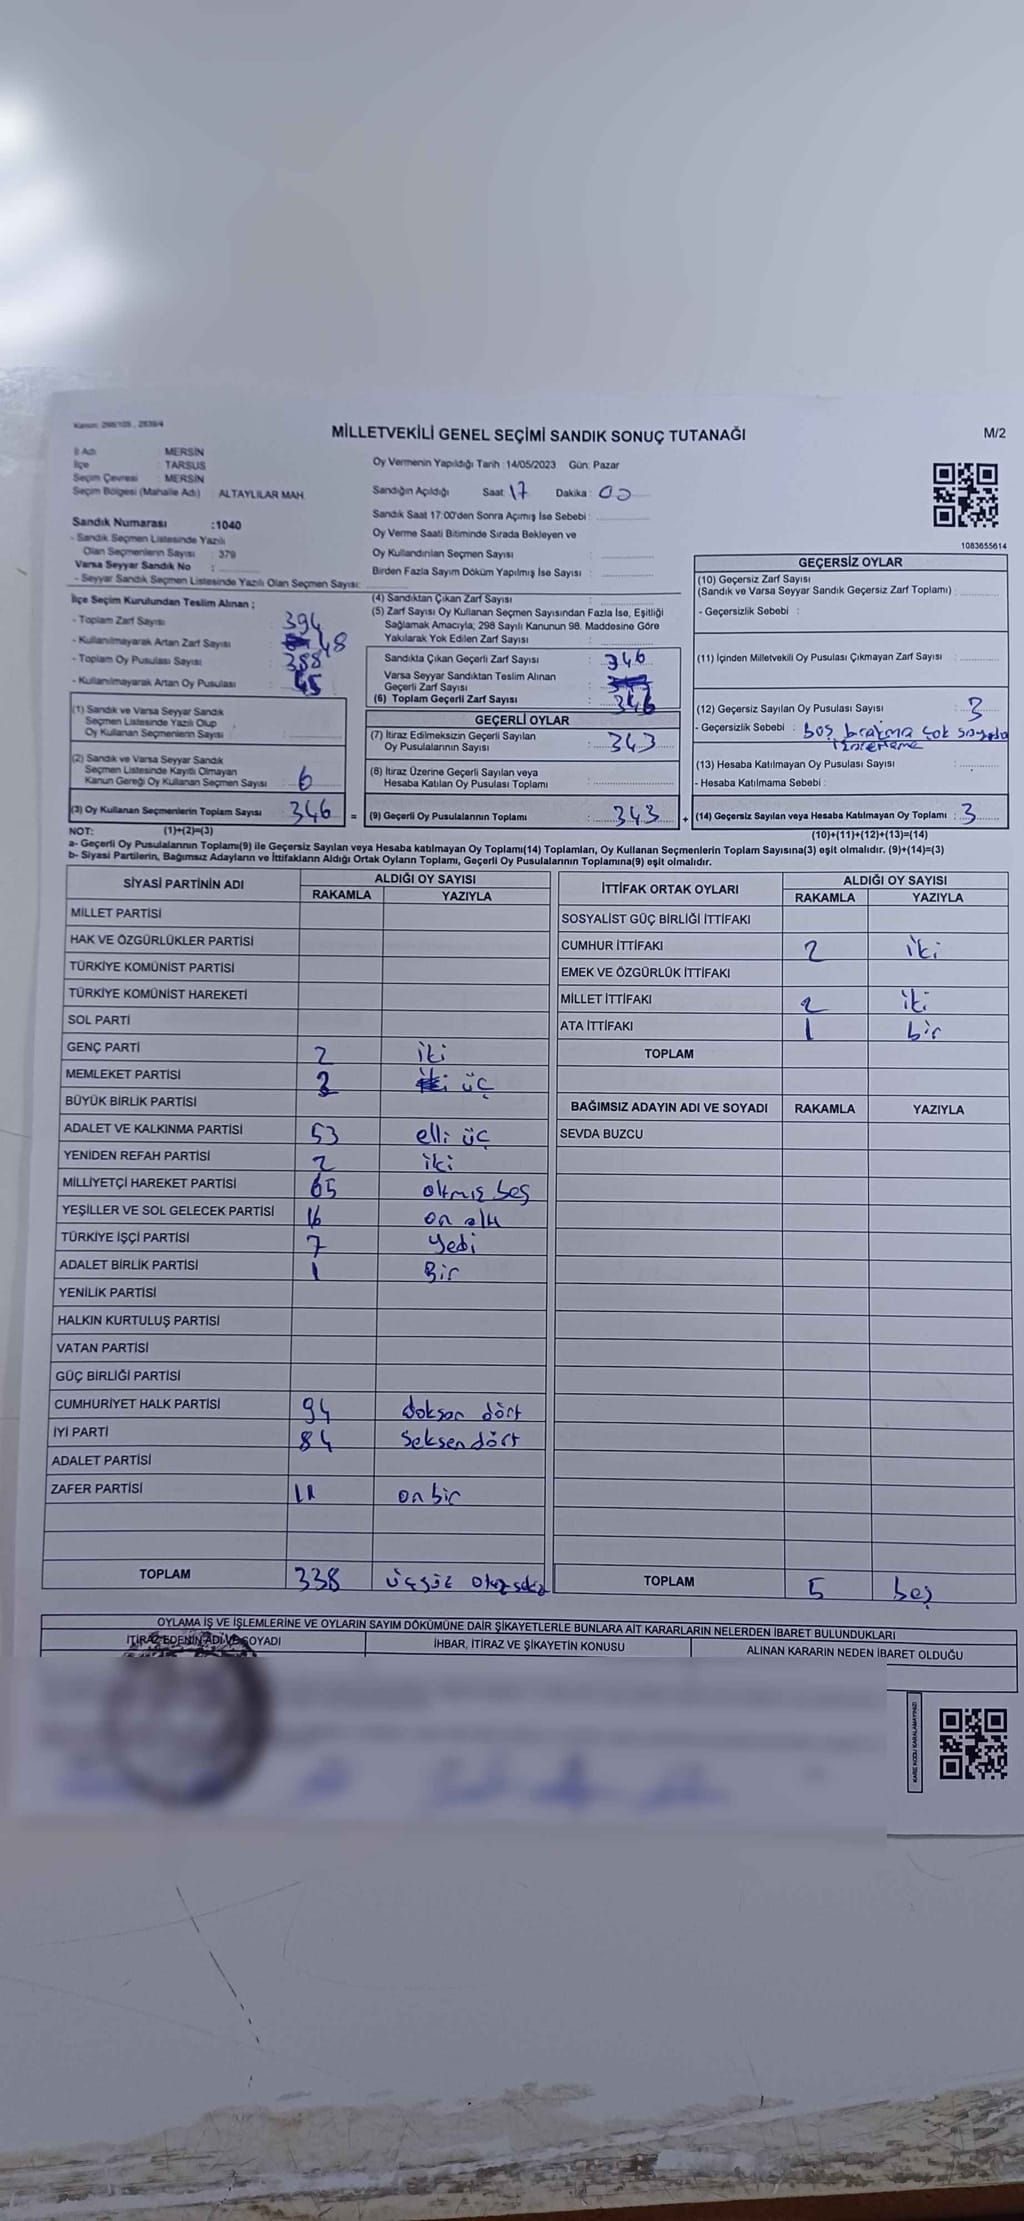 Kanun: 298/105 , 2839/4
MİLLETVEKİLİ GENEL SEÇİMİ SANDIK SONUÇ TUTANAĞI
M/2
İl Adı : MERSİN
İlçe : TARSUS
Seçim Çevresi : MERSİN
Seçim Bölgesi (Mahalle Adı) : ALTAYLILAR MAH.
Sandık Numarası :1040
- Sandık Seçmen Listesinde Yazılı
Olan Seçmenlerin Sayısı : 379
Varsa Seyyar Sandık No :
- Seyyar Sandık Seçmen Listesinde Yazılı Olan Seçmen Sayısı:
İlçe Seçim Kurulundan Teslim Alınan ;
- Toplam Zarf Sayısı : 394
- Kullanılmayarak Artan Zarf Sayısı : 48
- Toplam Oy Pusulası Sayısı : 388
- Kullanılmayarak Artan Oy Pusulası : 45
(1) Sandık ve Varsa Seyyar Sandık
Seçmen Listesinde Yazılı Olup
Oy Kullanan Seçmenlerin Sayısı :
(2) Sandık ve Varsa Seyyar Sandık
Seçmen Listesinde Kayıtlı Olmayan
Kanun Gereği Oy Kullanan Seçmen Sayısı : 6
(3) Oy Kullanan Seçmenlerin Toplam Sayısı : 346
Oy Vermenin Yapıldığı Tarih :14/05/2023 Gün: Pazar
Sandığın Açıldığı Saat: 17 Dakika : 00
Sandık Saat 17:00'den Sonra Açımış İse Sebebi :
Oy Verme Saati Bitiminde Sırada Bekleyen ve
Oy Kullandırılan Seçmen Sayısı :
Birden Fazla Sayım Döküm Yapılmış İse Sayısı :
(4) Sandıktan Çıkan Zarf Sayısı :
(5) Zarf Sayısı Oy Kullanan Seçmen Sayısından Fazla İse, Eşitliği
Sağlamak Amacıyla; 298 Sayılı Kanunun 98. Maddesine Göre
Yakılarak Yok Edilen Zarf Sayısı :
Sandıkta Çıkan Geçerli Zarf Sayısı : 346
Varsa Seyyar Sandıktan Teslim Alınan
Geçerli Zarf Sayısı :
(6) Toplam Geçerli Zarf Sayısı : 346
GEÇERLİ OYLAR
(7) İtiraz Edilmeksizin Geçerli Sayılan
Oy Pusulalarının Sayısı : 343
(8) İtiraz Üzerine Geçerli Sayılan veya
Hesaba Katılan Oy Pusulası Toplamı :
= (9) Geçerli Oy Pusulalarının Toplamı : 343
1083655614
GEÇERSİZ OYLAR
(10) Geçersiz Zarf Sayısı
(Sandık ve Varsa Seyyar Sandık Geçersiz Zarf Toplamı) :
- Geçersizlik Sebebi :
(11) İçinden Milletvekili Oy Pusulası Çıkmayan Zarf Sayısı :
(12) Geçersiz Sayılan Oy Pusulası Sayısı : 3
- Geçersizlik Sebebi : boş bırakma çok sayıda
(13) Hesaba Katılmayan Oy Pusulası Sayısı :
- Hesaba Katılmama Sebebi :
+ (14) Geçersiz Sayılan veya Hesaba Katılmayan Oy Toplamı : 3
NOT: (1)+(2)=(3)
(10)+(11)+(12)+(13)=(14)
a- Geçerli Oy Pusulalarının Toplamı(9) ile Geçersiz Sayılan veya Hesaba katılmayan Oy Toplamı(14) Toplamları, Oy Kullanan Seçmenlerin Toplam Sayısına(3) eşit olmalıdır. (9)+(14)=(3)
b- Siyasi Partilerin, Bağımsız Adayların ve İttifakların Aldığı Ortak Oyların Toplamı, Geçerli Oy Pusulalarının Toplamına(9) eşit olmalıdır.
SİYASİ PARTİNİN ADI ALDIĞI OY SAYISI
RAKAMLA YAZIYLA
MİLLET PARTİSİ
HAK VE ÖZGÜRLÜKLER PARTİSİ
TÜRKİYE KOMÜNİST PARTİSİ
TÜRKİYE KOMÜNİST HAREKETİ
SOL PARTİ
GENÇ PARTİ 2 iki
MEMLEKET PARTİSİ 3 üç
BÜYÜK BİRLİK PARTİSİ
ADALET VE KALKINMA PARTİSİ 53 elli üç
YENİDEN REFAH PARTİSİ 2 iki
MİLLİYETÇİ HAREKET PARTİSİ 65 altmış beş
YEŞİLLER VE SOL GELECEK PARTİSİ 16 on altı
TÜRKİYE İŞÇİ PARTİSİ 7 yedi
ADALET BİRLİK PARTİSİ 1 Bir
YENİLİK PARTİSİ
HALKIN KURTULUŞ PARTİSİ
VATAN PARTİSİ
GÜÇ BİRLİĞİ PARTİSİ
CUMHURİYET HALK PARTİSİ 94 doksan dört
İYİ PARTİ 84 Seksen dört
ADALET PARTİSİ
ZAFER PARTİSİ 11 on bir
TOPLAM 338 üçyüz otuzsekiz
İTTİFAK ORTAK OYLARI ALDIĞI OY SAYISI
RAKAMLA YAZIYLA
SOSYALİST GÜÇ BİRLİĞİ İTTİFAKI
CUMHUR İTTİFAKI 2 iki
EMEK VE ÖZGÜRLÜK İTTİFAKI
MİLLET İTTİFAKI 2 iki
ATA İTTİFAKI 1 bir
TOPLAM
BAĞIMSIZ ADAYIN ADI VE SOYADI RAKAMLA YAZIYLA
SEVDA BUZCU
TOPLAM 5 beş
OYLAMA İŞ VE İŞLEMLERİNE VE OYLARIN SAYIM DÖKÜMÜNE DAİR ŞİKAYETLERLE BUNLARA AİT KARARLARIN NELERDEN İBARET BULUNDUKLARI
İTİRAZ EDENİN ADI VE SOYADI İHBAR, İTİRAZ VE ŞİKAYETİN KONUSU ALINAN KARARIN NEDEN İBARET OLDUĞU
KARE KODU KARALAMAYINIZ!